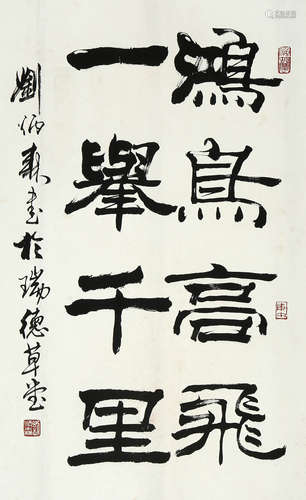 鴻鳥高飛
一舉千里
劉炳森書於瑞德草堂